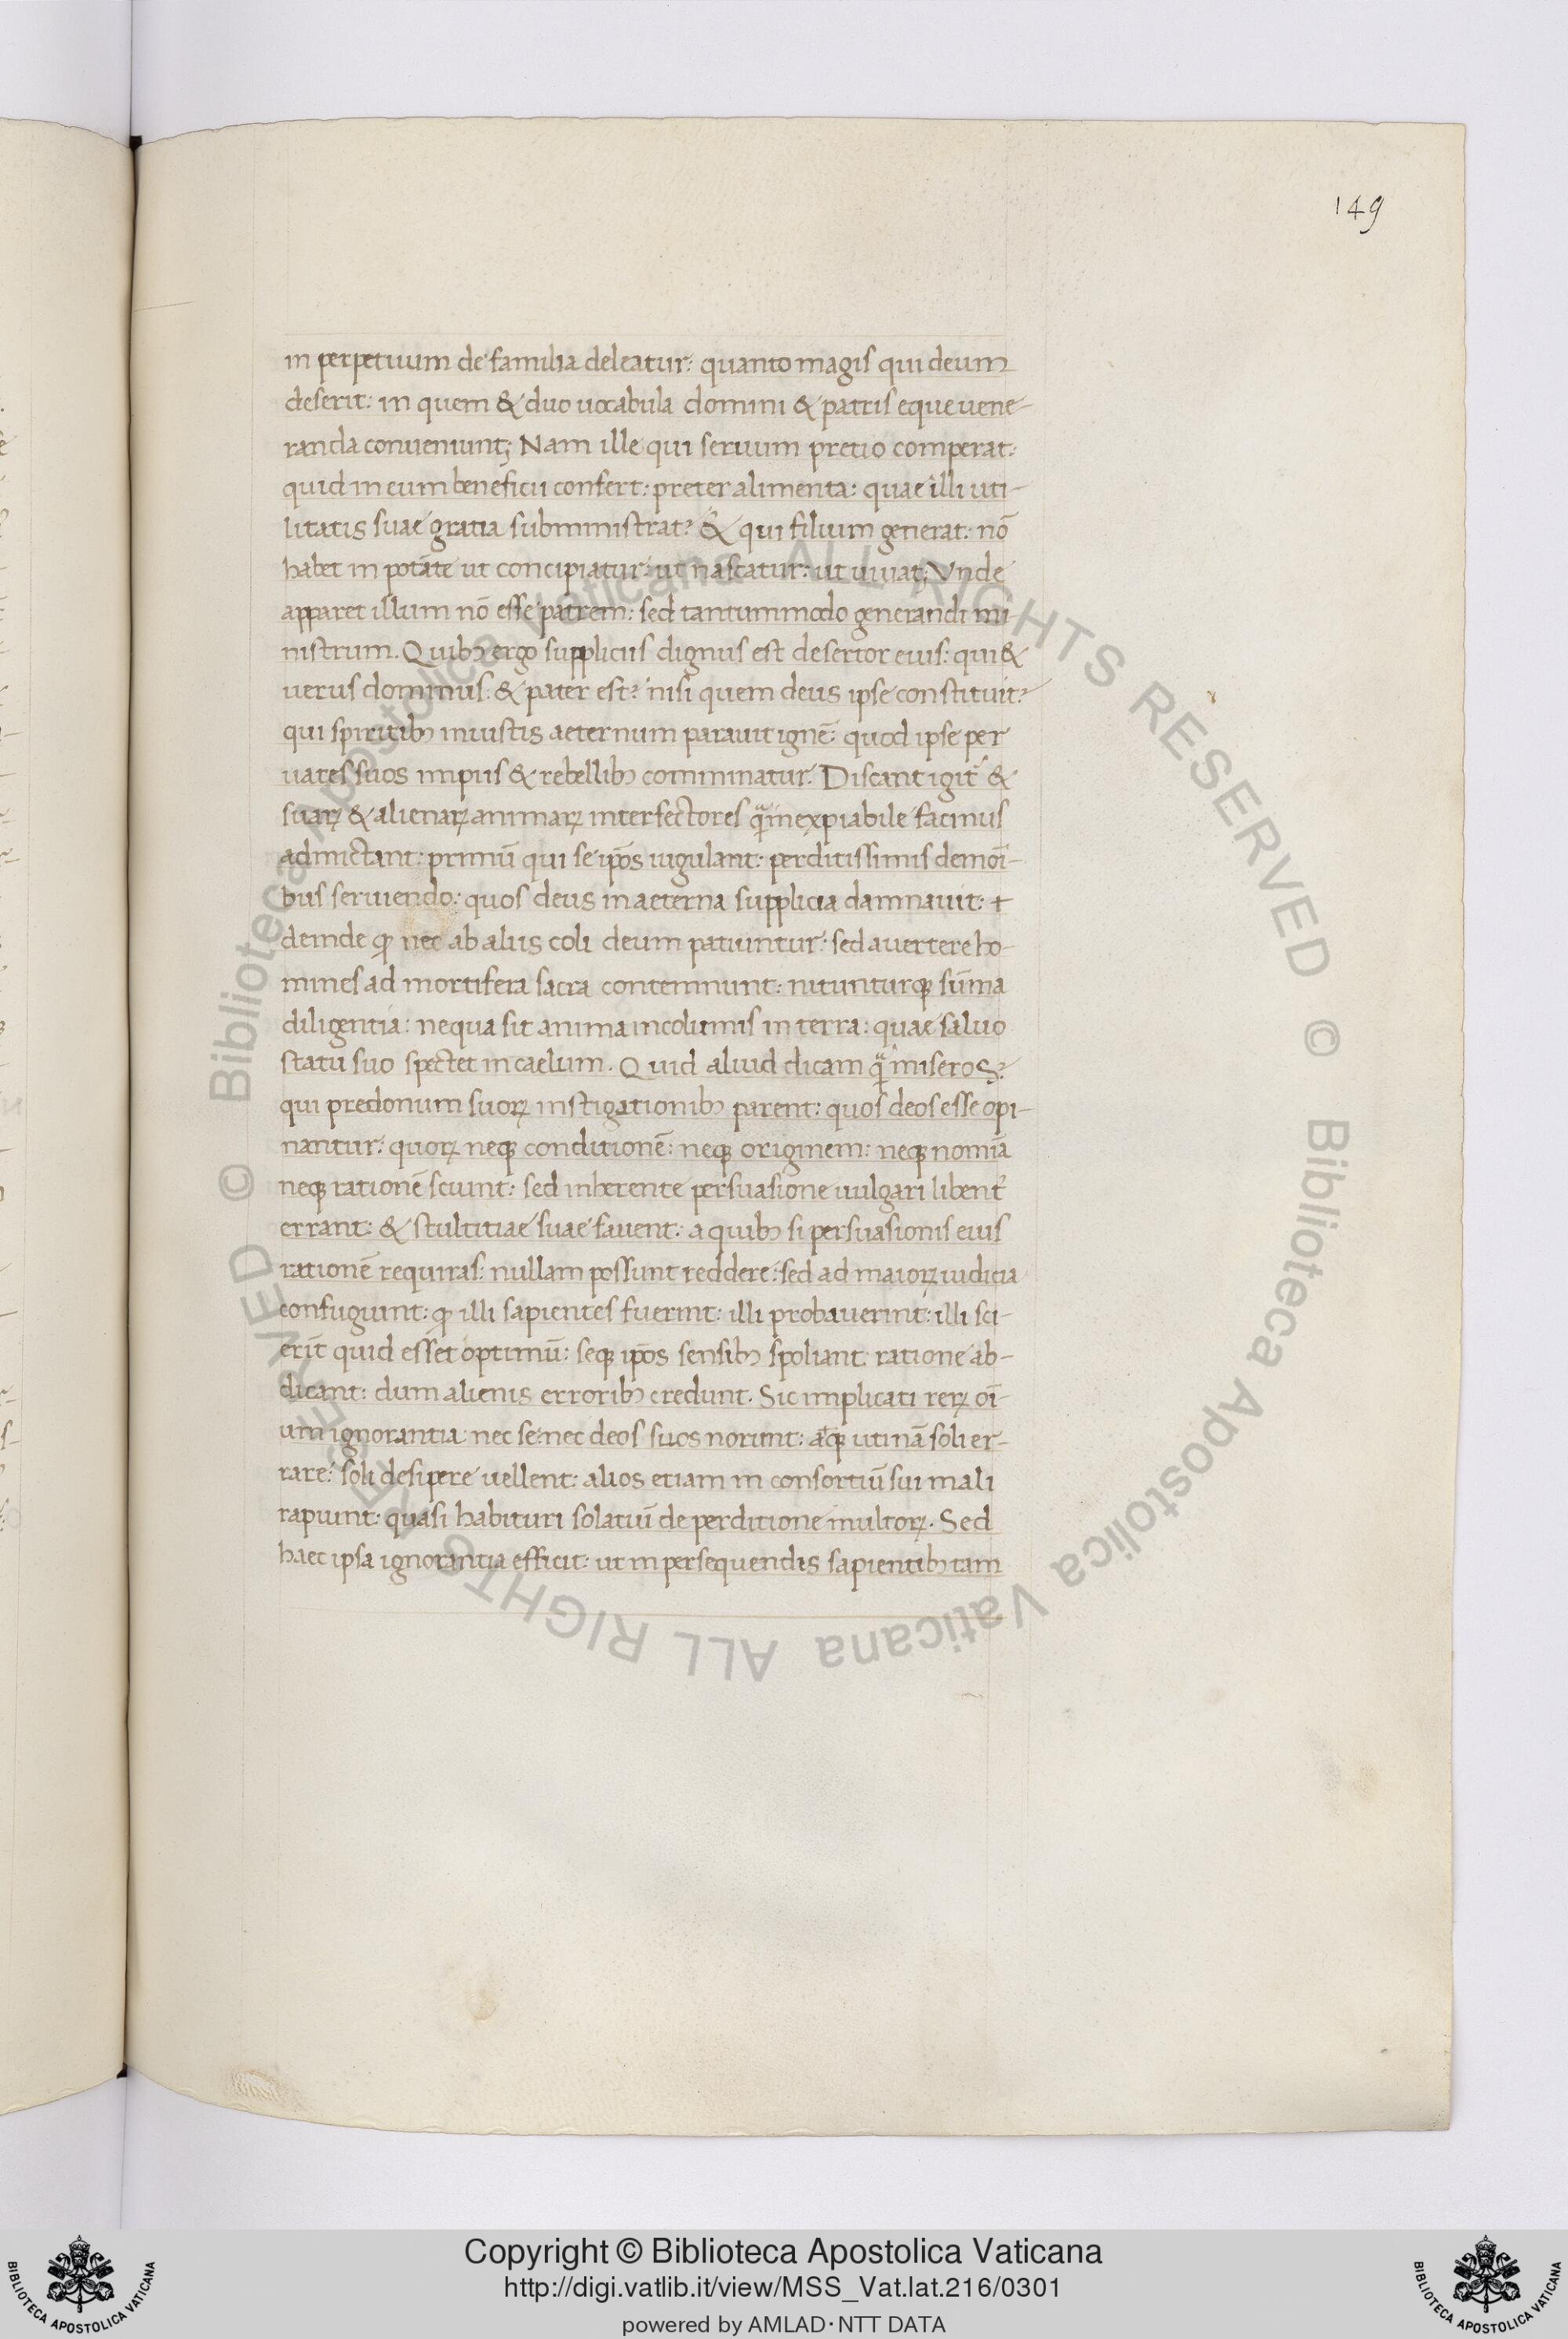 149
in perpetuum de familia deleatur: quanto magis qui deum
deserit: in quem & duo uocabula domini & patris eque uene-
randa conueniunt; Nam ille qui seruum pretio comperat:
quid in eum beneficii confert: preter alimenta: quae illi uti-
litatis suae gratia subministrat? & qui filium generat: nō
habet in potāte ut concipiatur: ut nascatur: ut uiuat; Vnde
apparet illum nō esse patrem: sed tantummodo generandi mi
nistrum. Quibꝫ ergo suppliciis dignus est desertor eius: qui &
uerus dominus: & pater est? nisi quem deus ipse constituit?
qui spiritibꝫ iniustis aeternum parauit ignē: quod ipse per
uates suos impiis & rebellibꝫ comminatur. Discant igit᷑ &
suaꝝ & alienaꝝ animaꝝ interfectores q̄ inexpiabile facinus
admictant: primū qui se ip̄os iugulant: perditissimis demoī-
bus seruiendo: quos deus in aeterna supplicia damnauit: &
deinde ꝙ nec ab aliis coli deum patiuntur: sed auertere ho-
mines ad mortifera sacra contemnunt: nitunturqꝫ sūma
diligentia: nequa sit anima incolumis in terra: quae saluo
statu suo spectet in caelum. Quid aliud dicam q̄ miseros?
qui predonum suoꝝ instigationibꝫ parent: quos deos esse opi-
nantur: quoꝝ neqꝫ conditionē: neqꝫ originem: neqꝫ nomīa
neqꝫ rationē sciunt: sed inherente persuasione uulgari libent᷑
errant: & stultitiae suae fauent: a quibꝫ si persuasionis eius
rationē requiras: nullam possunt reddere: sed ad maioꝝ iudicia
confugiunt: ꝙ illi sapientes fuerint: illi probauerint: illi sci-
erīt quid esset optimū: seqꝫ ip̄os sensibꝫ spoliant: ratione ab-
dicant: dum alienis erroribꝫ credunt. Sic implicati reꝝ oī-
um ignorantia: nec se: nec deos suos norunt: atqꝫ utinā soli er-
rare: soli desipere uellent: alios etiam in consortiū sui mali
rapiunt: quasi habituri solatiū de perditione multoꝝ. Sed
haec ipsa ignorantia efficit: ut in persequendis sapientibꝫ tam
© Biblioteca Apostolica Vaticana ALL RIGHTS RESERVED © Biblioteca Apostolica Vaticana ALL RIGHTS RESERVED
Copyright © Biblioteca Apostolica Vaticana
http://digi.vatlib.it/view/MSS_Vat.lat.216/0301
powered by AMLAD·NTT DATA
BIBLIOTECA APOSTOLICA VATICANA
BIBLIOTECA APOSTOLICA VATICANA